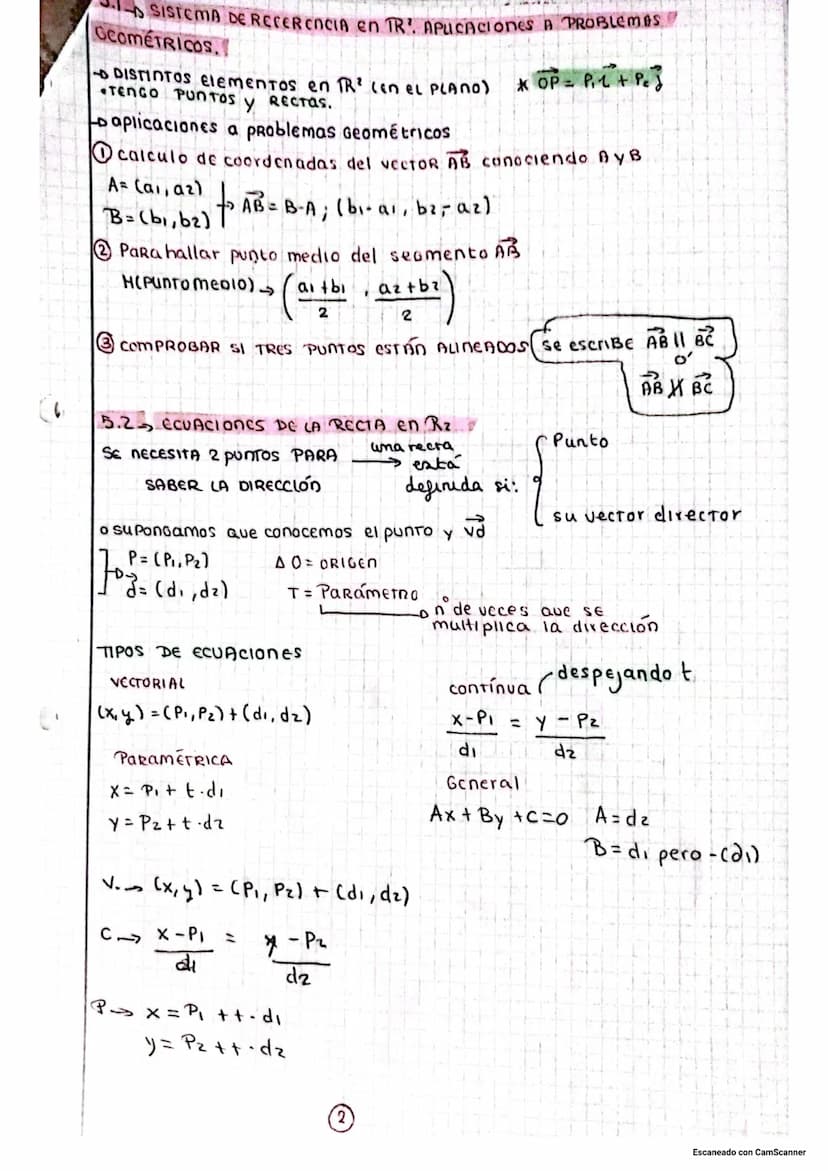 5.1→ SISTEMA DE REFERENCIA en TR². APLICACIONES A PROBLEMAS
GEOMÉTRICOS.
→ DISTINTOS elementos en TR² (en el PLANO) * OP = P₁i + P₂j
• TENGO PUNTOS y RECTAS.
→ aplicaciones a PROBLEMAS Geométricos
① calculo de coordenadas del vector AB conociendo A y B
A= (a1, a2)
B= (b1, b2) → AB = B-A ; (b1-a1, b2-a2)
② Para hallar punto medio del segmento AB
M(PUNTO MEDIO) → (a1+b1/2, a2+b2/2)
③ COMPROBAR SI TRES PUNTOS ESTÁN ALINEADOS (se escribe AB || BC
o'
AB ∦ BC
5.2→ ECUACIONES DE LA RECTA en R2
SE NECESITA 2 puntos PARA
SABER LA DIRECCIÓN
una recta
→ está
definida si:
Punto
su vector director
o SUPONGAMOS que conocemos el punto y vd
P = (P1, P2)
d = (d1, d2)
Δ O = ORIGEN
T = Parámetro
nº de veces que se
multiplica la dirección
TIPOS DE ECUACIONES
VECTORIAL
(x,y) = (P1, P2) + (d1, d2)
Paramétrica
x = P1 + t·d1
y = P2 + t·d2
contínua (despejando t
x-P1/d1 = y-P2/d2
General
Ax + By + C=0 A= d2
B= d1 pero -(d1)
V.→ (x,y) = (P1, P2) + (d1, d2)
C→ x-P1/d1 = y-P2/d2
P→ x = P1 + t·d1
y = P2 + t·d2
2
Escaneado con CamScanner